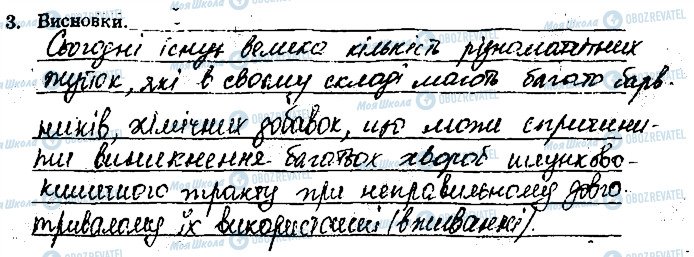 3. Висновки.
Сьогодні існує велика кількість різноманітних
жуйок, які в своєму складі мають багато барв-
ників, хімічних добавок, що може спричини-
ти виникнення багатьох хвороб шлунково-
кишкового тракту при неправильному довго-
тривалому їх використанні (вживанні).